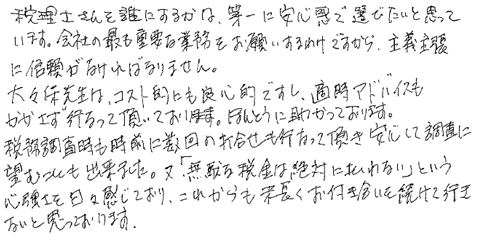 税理士さんを誰にするかは、第一に安心感で選びたいと思って
います。会社の最も重要な業務をお願いするわけですから、主義主張
に信頼がなければなりません。
大々保先生は、コスト的にも良心的ですし、適時アドバイスも
かかさず行なって頂いております。ほんとうに助かっております。
税務調査時も時前に数回の打合せも行なって頂き安心して調査に
望むことも出来ました。又「無駄な税金は絶対に払わない」という
心強さを日々感じており、これからも末長くお付き合いを続けて行き
たいと思っております。